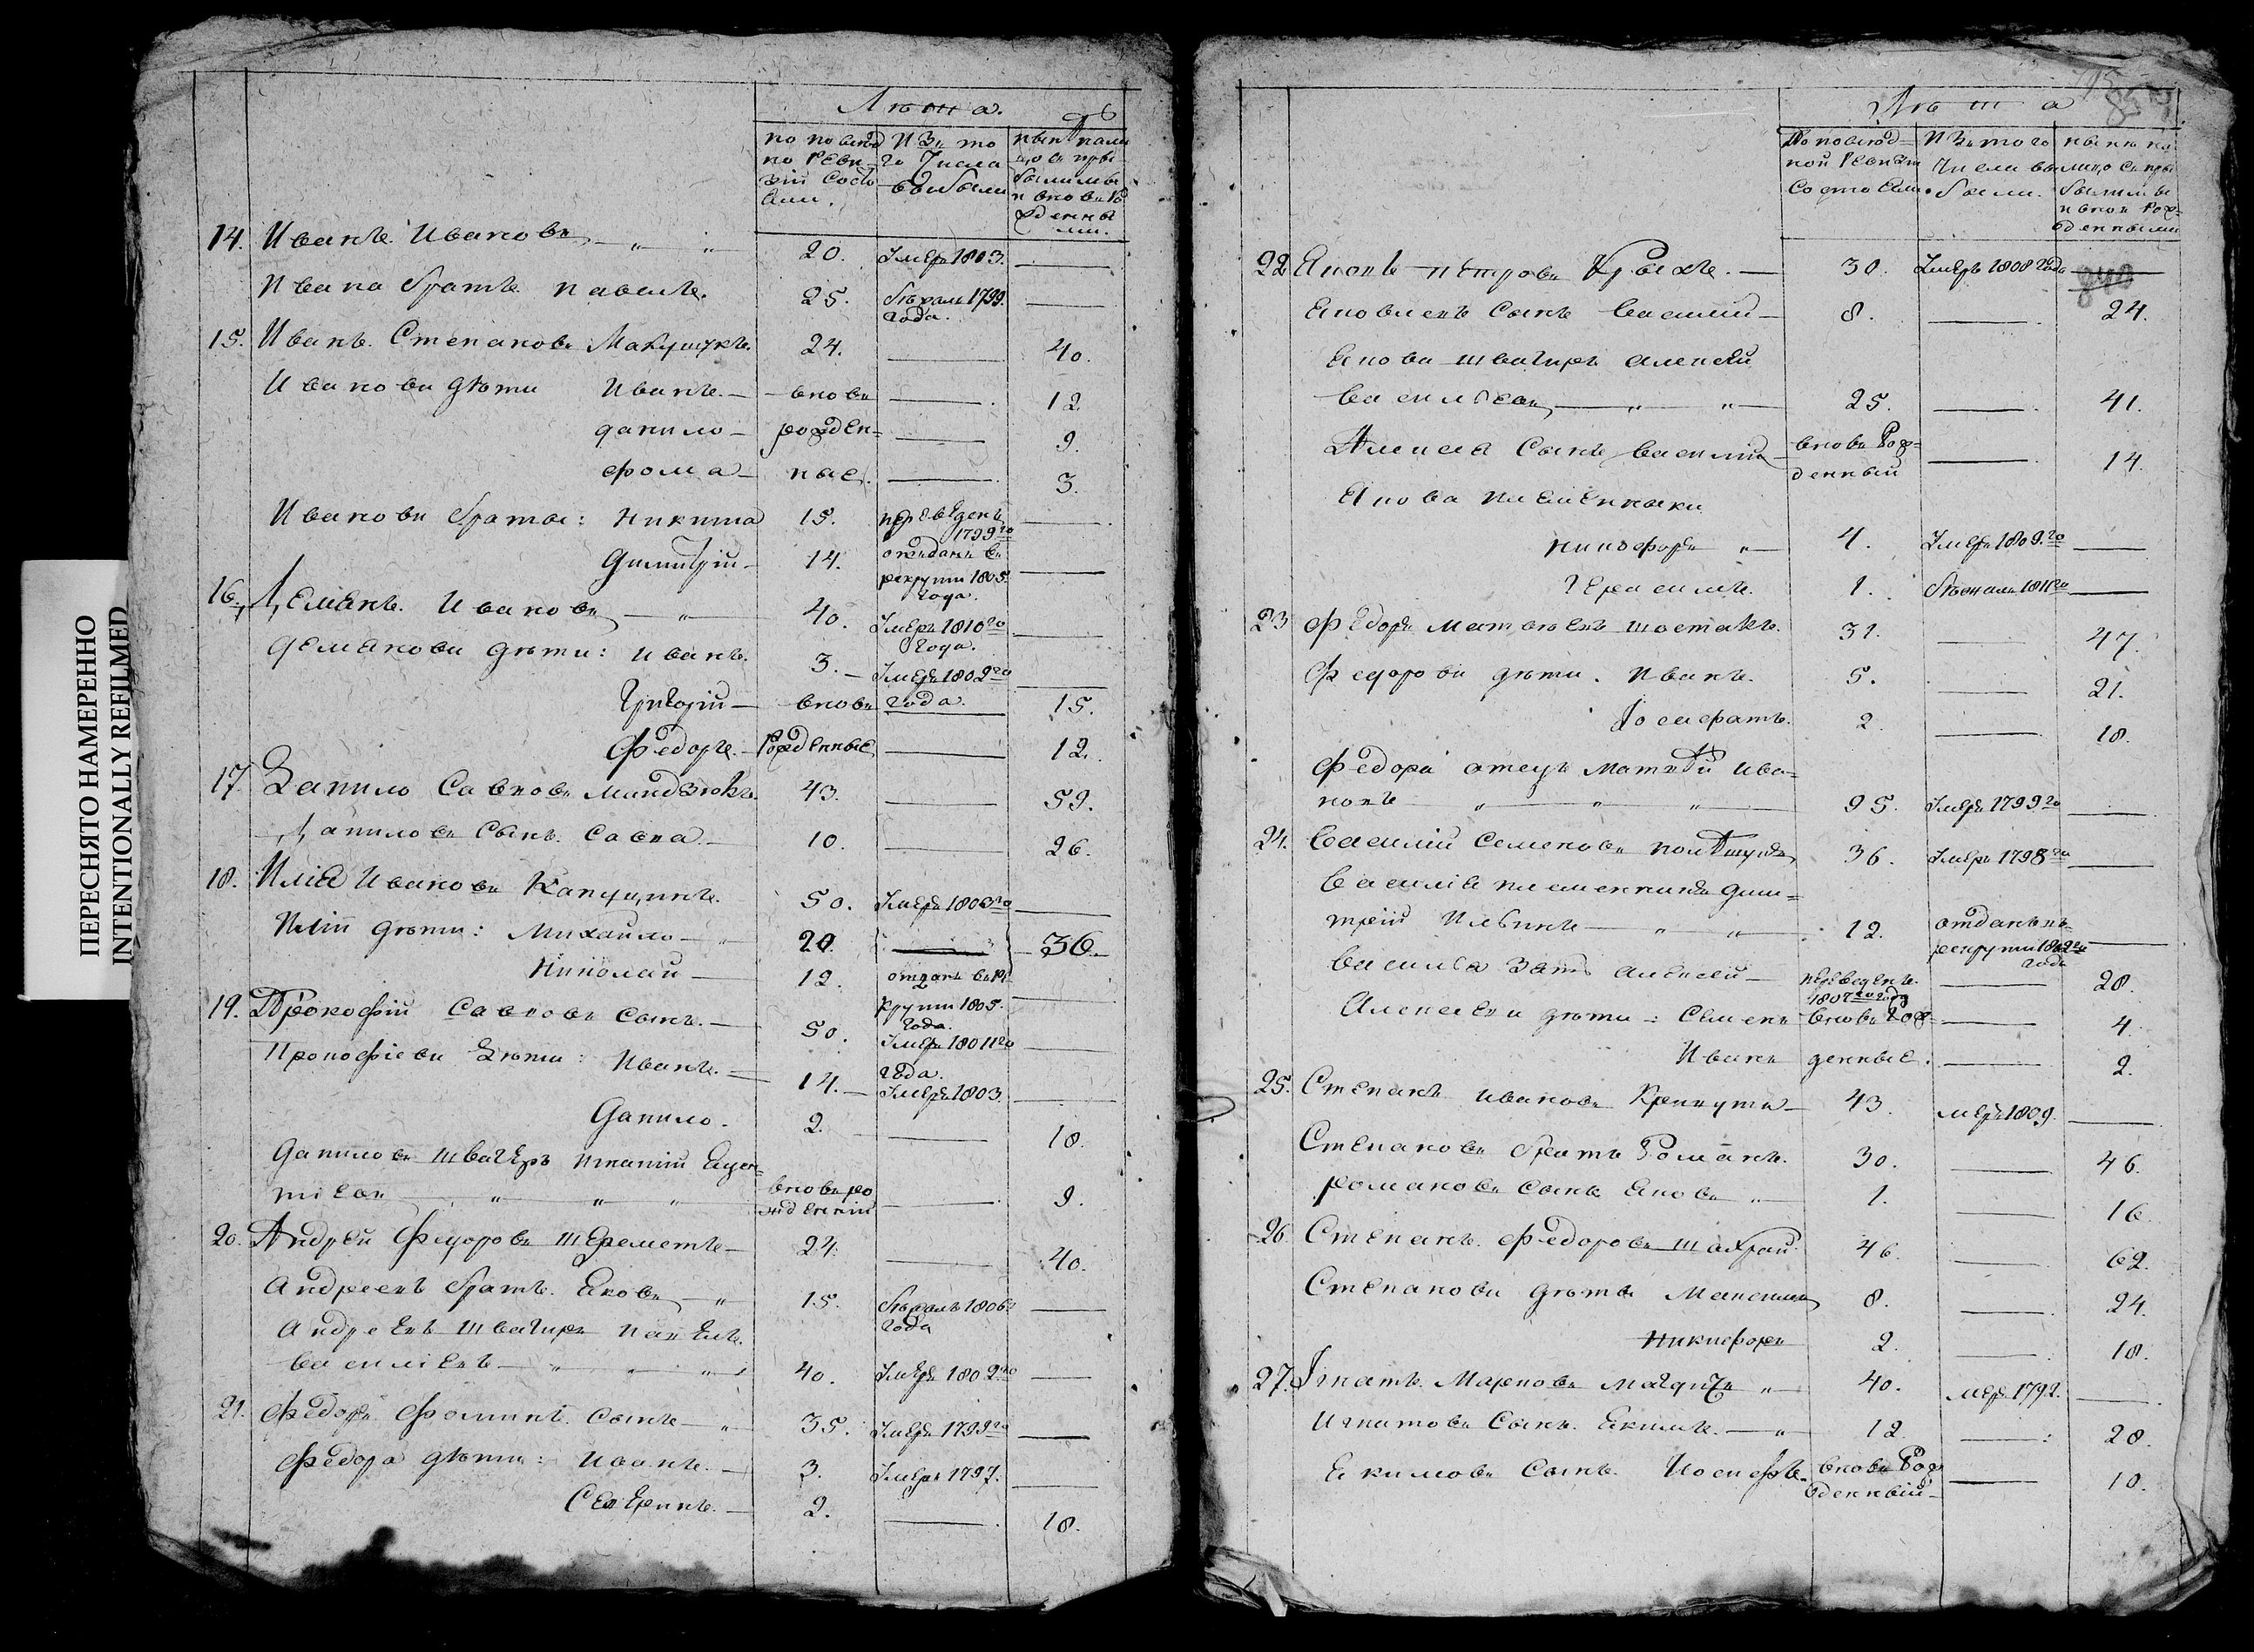 ПЕРЕСНЯТО НАМЕРЕННО
INTENTIONALLY REFILMED
Лѣта.
по послѣд
но Реви-
зіи Состо
яли.
Изъ то
го Числа
выбыли
14. Иванъ Ивановъ 20. Умеръ 1803.
Ивана братъ Павелъ. 25. бѣжалъ 1799.
года.
15. Иванъ Степановъ Макущукъ. 24. 40.
Ивановы дѣти Иванъ. вновь 12.
данило рожден= 9.
фома ные. 3.
Ивановы братья: Никита 15. переведенъ
1799го
Димитрій 14. отданъ въ
рекруты 1805.
года.
16. Деміянъ Ивановъ 40. Умеръ 1810го
года.
демяновы дѣти: иванъ. 3. Умеръ 1802го
Григорій вновь года. 15.
Федоръ. Рожденные 12.
17. Данило Савковъ Мандзюкъ. 43. 59.
Даниловъ Сынъ Савка 10. 26.
18. Илія Ивановъ Капуцинъ. 50. Умеръ 1803го
Иліи дѣти: Михайло 20. 36
Николай 12. отданъ въ ре
круты 1805.
года.
19. Прокофій Савковъ Сынъ. 50. Умеръ 1801го
года.
Прокофіевы Дѣти: Иванъ. 14. Умеръ 1803.
Данило. 2. 18.
Даниловъ швагеръ Игнатій
вновь ро
жденній 9.
20. Андрей Федоровъ Шереметъ 24. 40.
Андреевъ братъ Яковъ 15. бѣжалъ 1806го
года
Андреевъ швагиръ Павелъ.
Василіевъ 40. Умеръ 1802го
21. Федоръ Фоминъ Сынъ 35. Умеръ 1799го
Федора дѣти: Иванъ. 3. Умеръ 1797.
Северинъ. 2. 18.
Лѣта
По послѣд=
ной Ревизіи
Состояли.
Изъ того
Числа вы
были.
22 Яковъ Петровъ Крысъ. 30. Умеръ 1808 года
Яковлевъ Сынъ Василій 8. 24.
Якова швагиръ Алексѣй
Васильевъ 25. 41.
Алексѣя Сынъ Василій вновь Рож=
денный 14.
Якова племенники
никифоръ 4. Умеръ 1809.го
Герасимъ. 1. бѣжалъ 1811го
23 Федоръ Матвѣевъ Шостакъ. 31. 47.
Федоровы дѣти. Иванъ. 5. 21.
Іосафатъ. 2. 18.
Федора отецъ Матвѣй Ива=
новъ 95. Умеръ 1799го
24. Василій Семеновъ 36. Умеръ 1798го
Василія племенникъ Дми=
трій Ильинъ 12. отданъ въ
рекруты 1802го
года
Василія Зять Алексѣй переведенъ.
1807го году 28.
Алексѣевы дѣти: Семенъ вновь Рож= 4.
Иванъ денные. 2.
25. Степанъ Ивановъ 43. меръ 1809.
Степановъ братъ Романъ. 30. 46.
Романовъ Сынъ Яковъ 1. 16.
26. Степанъ Федоровъ Шахрай 46. 62.
Степановы дѣти Максимъ 8. 24.
Никифоръ 2. 18.
27. Игнатъ Марковъ 40. меръ 1792.
Игнатовъ Сынъ Екимъ. 12. 28.
Екимовъ Сынъ Иосифъ вновь Рож
денный 10.